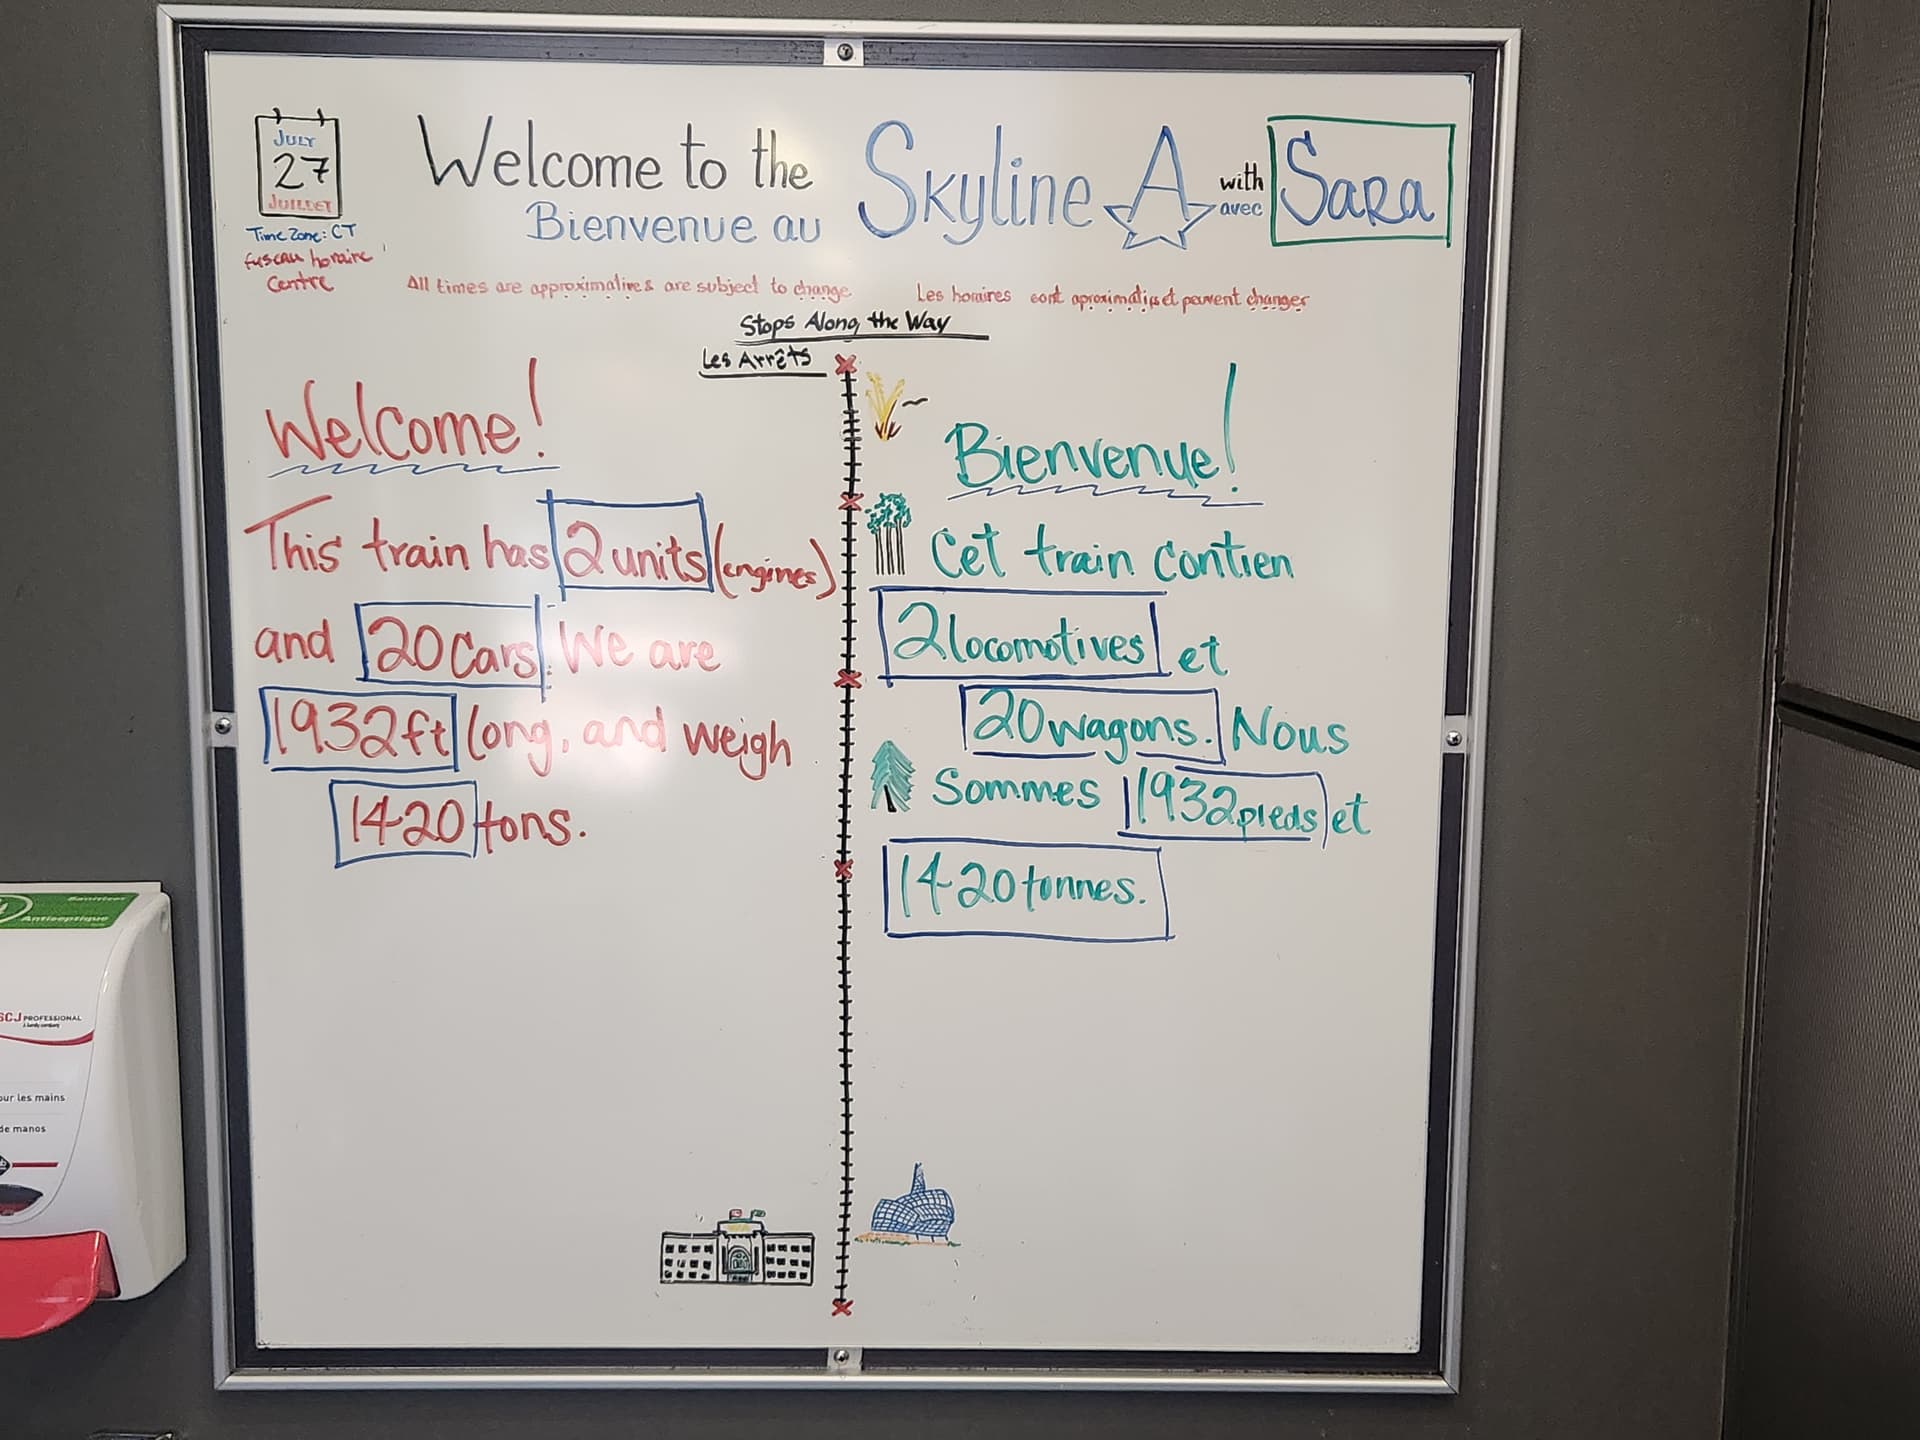 JULY
27
JUILLET
Time Zone: CT
fuseau horaire
Centre
Welcome to the
Bienvenue au
Skyline A
with
avec
Sara
All times are approximative & are subject to change
Les horaires sont aproximatifs et peuvent changer
Stops Along the Way
Les Arrêts
Welcome!
This train has 2 units (engines)
and 20 Cars. We are
1932 ft long, and weigh
1420 tons.
Bienvenue!
Cet train contien
2 locomotives et
20 wagons. Nous
Sommes 1932 pieds et
1420 tonnes.
Sanitizer
Antiseptique
SCJ PROFESSIONAL
our les mains
de manos